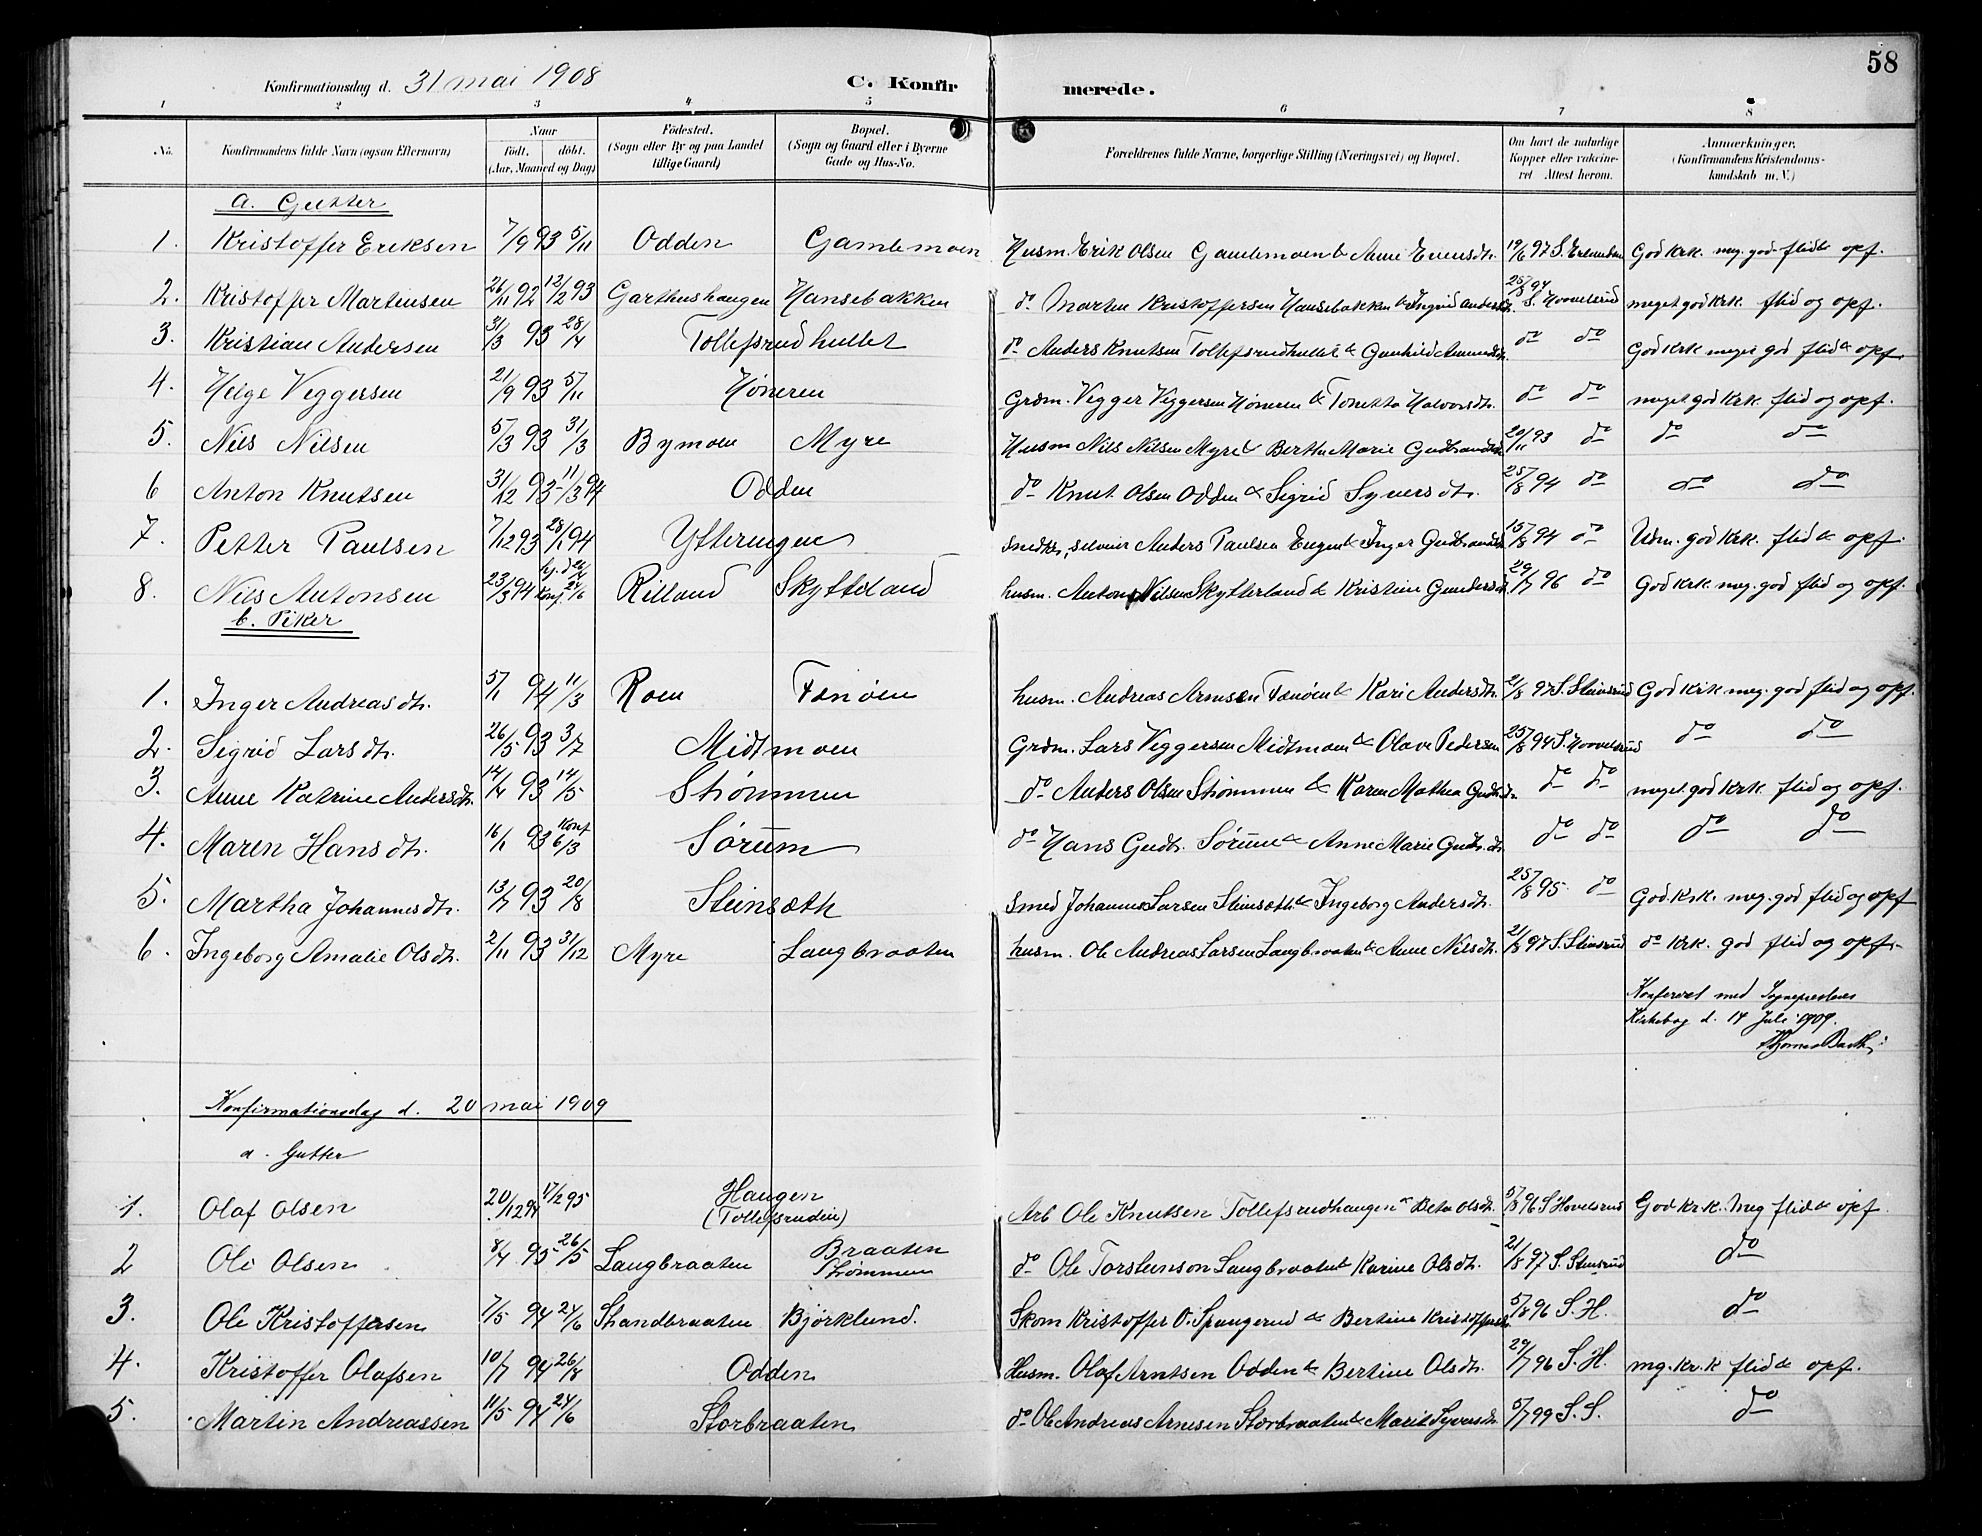 58
Konfirmationsdag d. 31 mai 1908 C. Konfirmerede.
1 2 3 4 5 6 7 8
No. Konfirmandens fulde Navn (ogsaa Efternavn) Naar født, døbt. (Aar, Maaned og Dag) Fødested. (Sogn eller By og paa Landet tillige Gaard) Bopæl. (Sogn og Gaard eller i Byerne Gade og Hus-No. Forældrenes fulde Navne, borgerlige Stilling (Næringsvei) og Bopæl. Om havt de naturlige Kopper eller vaccineret Attest herom. Anmærkninger. (Konfirmandens Kristendomskundskab m. V.)
a. Gutter
1. Kristoffer Eriksen 7/9 93 5/11 Odden Gamlemoen Husm. Erik Olsen Gamlemoen & Anne Evensdtr. 19/6 97 S. God krk. meg. god flid & opf.
2. Kristoffer Martinsen 26/11 92 12/2 93 Garthushaugen Hansebakken do Martin Kristoffersen Hansebakken & Ingrid Andersdtr. 25/8 94 S. Hovelsrud meget god krk. flid og opf.
3. Kristian Andersen 31/3 93 28/4 Tollefsrudhullet do Anders Knutsen Tollefsrudhullet & Gunhild Amundsdtr. do do God krk meget god flid & opf.
4. Helge Veggersen 21/9 93 5/11 Høneren Grdm. Vegger Veggersen Høneren & Tonetta Halvorsdtr. do do meget god krk. flid og opf.
5. Nils Nilsen 5/3 93 31/3 Bymoen Myre Husm Nils Nilsen Myre & Berthe Marie Gudbrandsdtr 20/11 93 do do do
6 Anton Knutsen 31/12 93 11/3 94 Odden do Knut Olsen Odden & Sigrid Syversdtr. 25/8 94 do do do
7. Petter Paulsen 7/12 93 28/1 94 Ytteringen Anders Paulsen & Inger Gudbrandsdtr 15/8 94 do Udm. god krk. flid & opf.
8. Nils Antonsen 23/3 94 hj. d. konf. 24/6 Rilland Skytteland husm. Anton Nilsen Skytterland & Kristine Gundersdtr 29/7 96 do God krk meg. god flid og opf.
b. Piker
1. Inger Andreasdtr. 5/1 94 11/3 Roen Fanøen husm. Andreas Arnesen Fanøen & Kari Andersdtr. 21/8 97 S. Stensrud God krk. meg. god flid og opf.
2. Sigrid Larsdtr. 26/5 93 3/7 Midtmoen Grdm. Lars Veggersen Midtmoen & Olave Pedersen 25/8 94 S. Hovelsrud do do
3. Anne Katrine Andersdtr. 14/4 93 14/5 Strømmen do Anders Olsen Strømmen & Karen Mathea Gudbr.dtr do do meget god krk flid og opf.
4. Maren Hansdtr. 16/1 93 konf 6/3 Sørum do Hans Gudbr. Sørum & Anne Marie Gudbr.dtr do do do do
5. Martha Johannesdtr. 13/7 93 20/8 Steinsæth Smed Johannes Larsen Steinsæth & Ingeborg Andersdtr. 25/8 95. do God krk. meg. god flid og opf
6. Ingeborg Amalie Olsdtr. 2/11 93 31/12 Myre Langbraaten husm. Ole Andreas Larsen Langbraaten & Anne Nilsdtr. 21/8 97 S. Stensrud do krk. god flid og opf.
Konferert med Sogneprestens
Kirkebog d. 14 Juli 1909.
Thomas Barth
Konfirmationsdag d. 20 mai 1909
a. Gutter
1. Olaf Olsen 20/12 94 17/2 95 Haugen (Tollefsrudeie) Arb Ole Knutsen Tollefsrudhaugen & Beta Olsdtr. 5/8 96 S Hovelsrud God krk. Meg flid & opf.
2 Ole Olsen 8/4 95 26/5 Langbraaten Braaten Strømmen do Ole Torstenson Langbraaten & Karine Olsdtr. 21/8 97 S. Stensrud do
3. Ole Kristoffersen 7/5 94 24/6 Strandbraaten Bjørklund. Skom Kristoffer O. Spangerud & Bertine Kristoffersdtr 5/8 96 S. H. do
4. Kristoffer Olafsen 10/7 94 26/8 Odden Husm. Olaf Arntsen Odden & Bertine Olsdtr. 29/7 96 S. H. mg. kr. k flid & opf.
5. Martin Andreassen 11/5 94 24/6 Storbraaten do Ole Andreas Arnesen Storbraaten & Marit Syversdtr 5/7 99 S. S. do